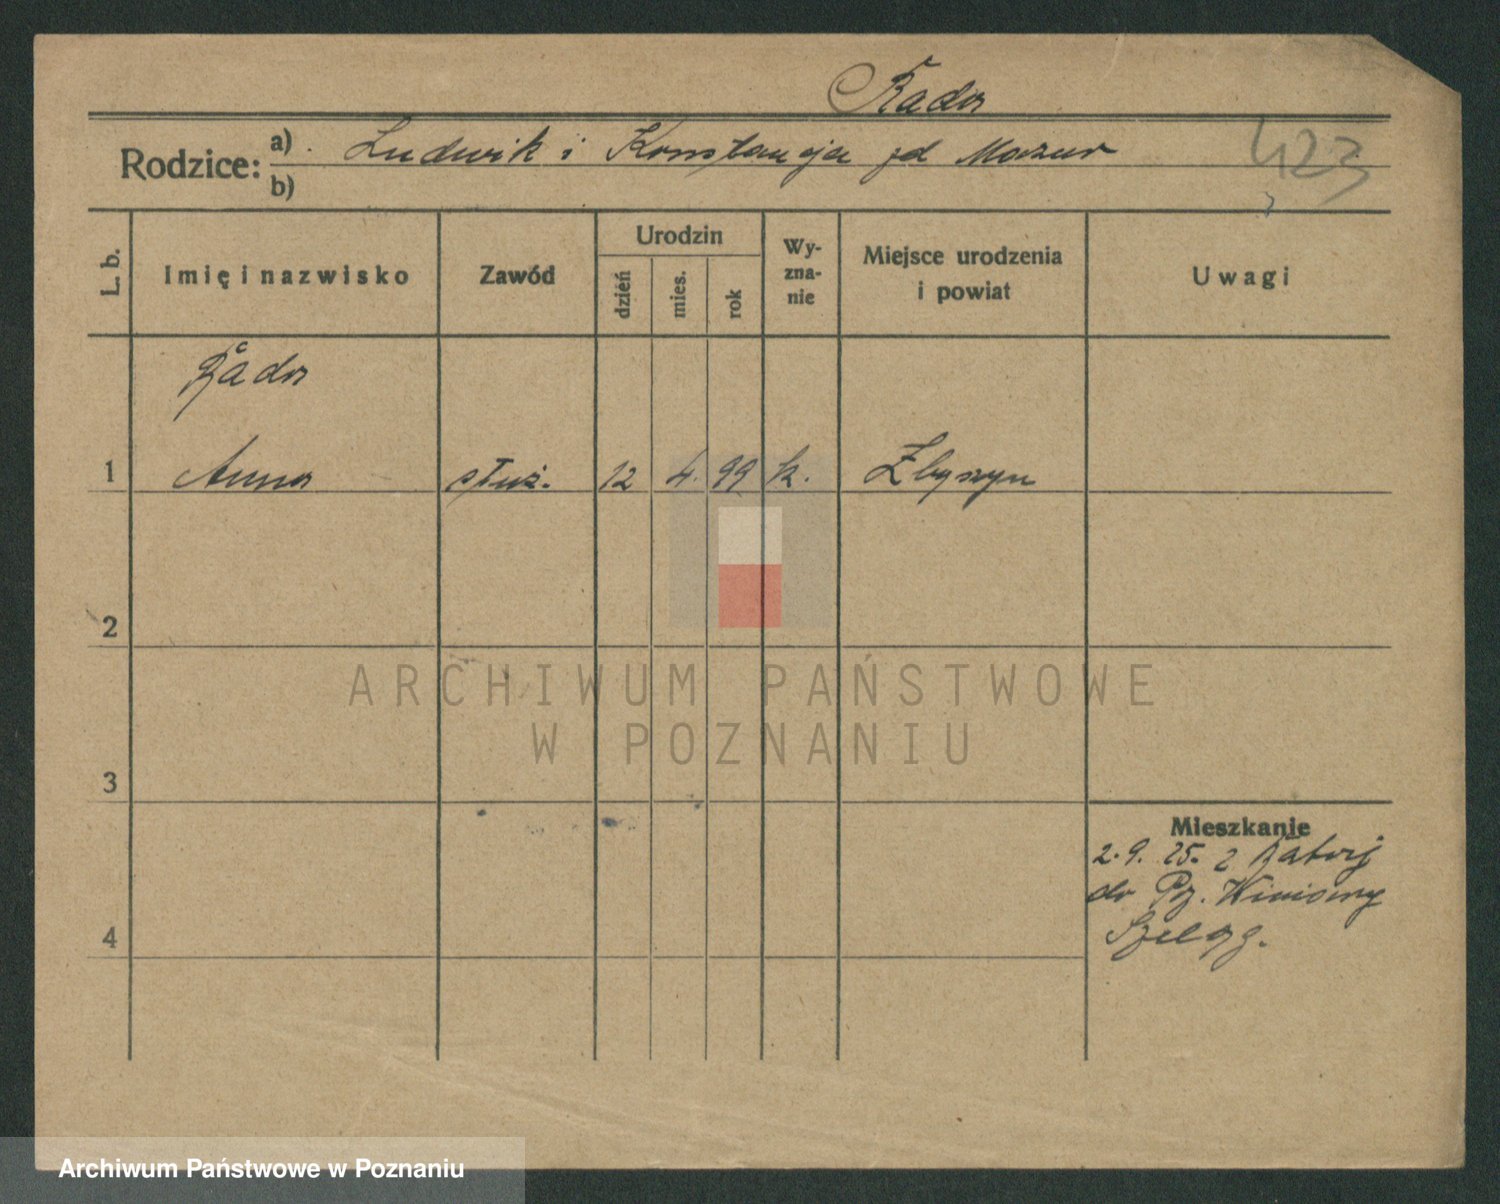 Rada
Rodzice: a) Ludwik i Konstancja zd Mazur
b)
423
L. b.
Imię i nazwisko
Zawód
Urodzin
dzień
mies.
rok
Wy-
zna-
nie
Miejsce urodzenia
i powiat
Uwagi
Rada
1 Anna służ. 12 4. 99 k. Zbąszyn
2
3
4
ARCHIWUM PAŃSTWOWE
W POZNANIU
Mieszkanie
2. 9. 25. z
do Pozn. Winiary
Szeląg.
Archiwum Państwowe w Poznaniu